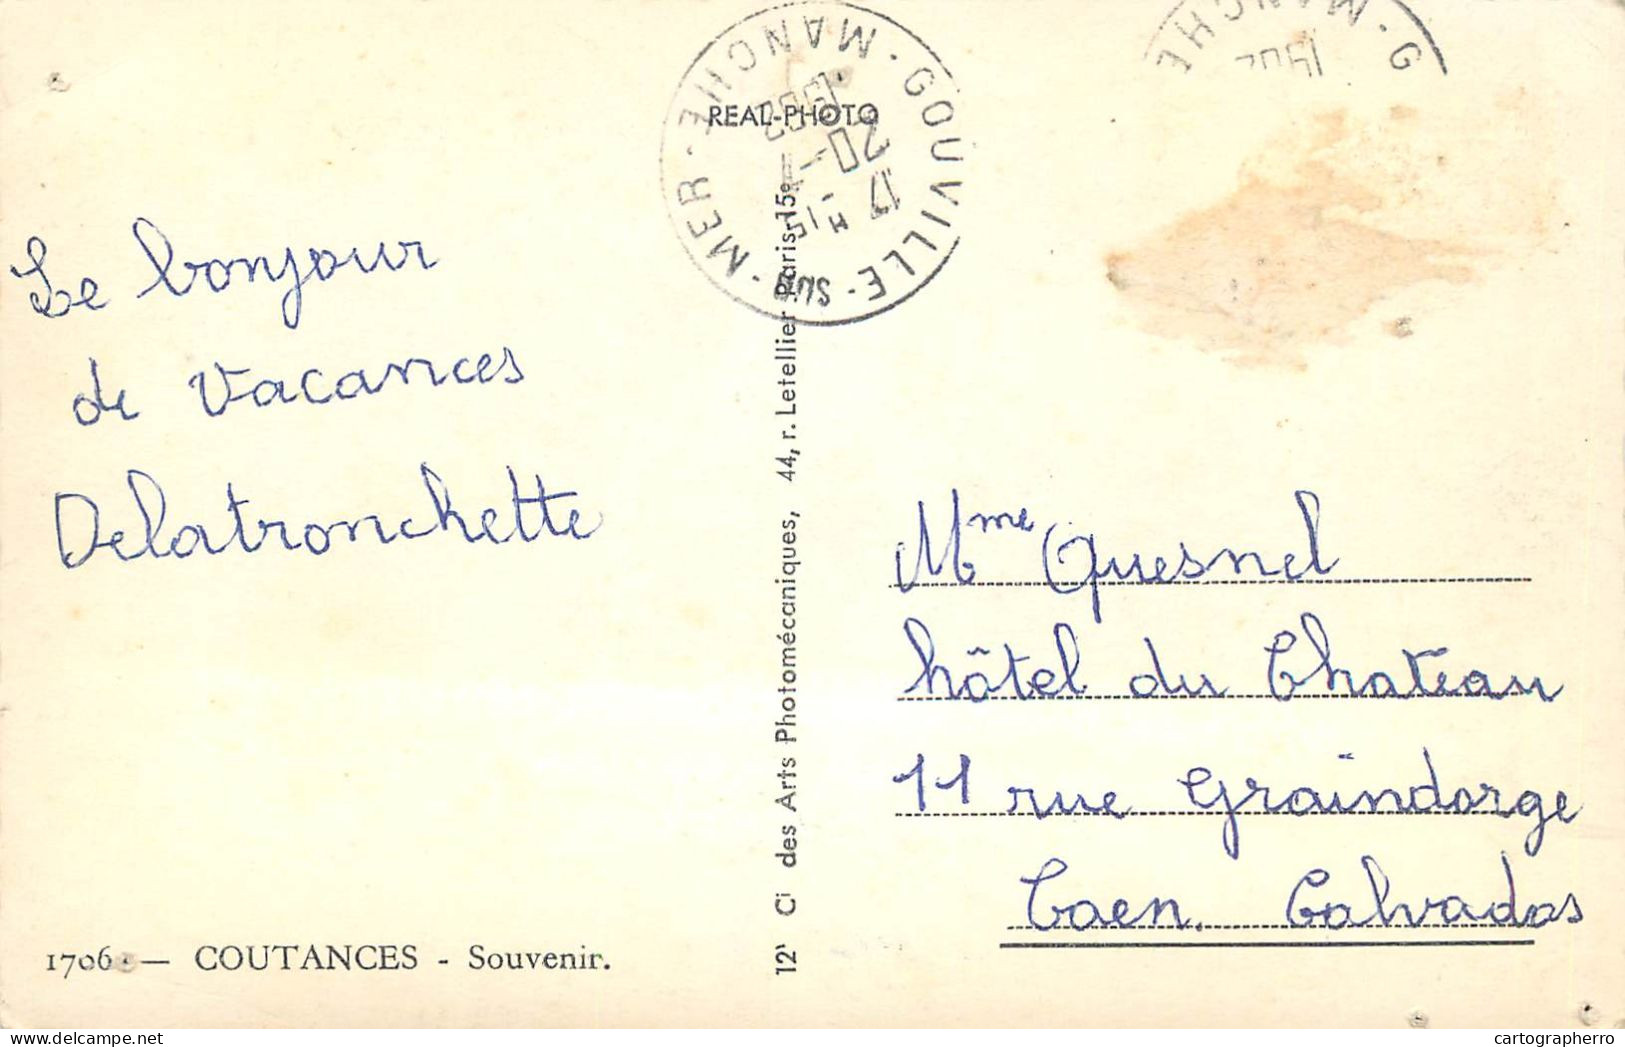 REAL-PHOTO
GOUVILLE - SUR - MER - MANCHE
17 H -15
20 -
MANCHE
G
Le bonjour
de vacances
Delatronchette
Mme Quesnel
hôtel du Chateau
11 rue Graindorge
Caen. Calvados
Cie des Arts Photomécaniques, 44, r. Letellier Paris-15e
1706 — COUTANCES - Souvenir.
cartographerro